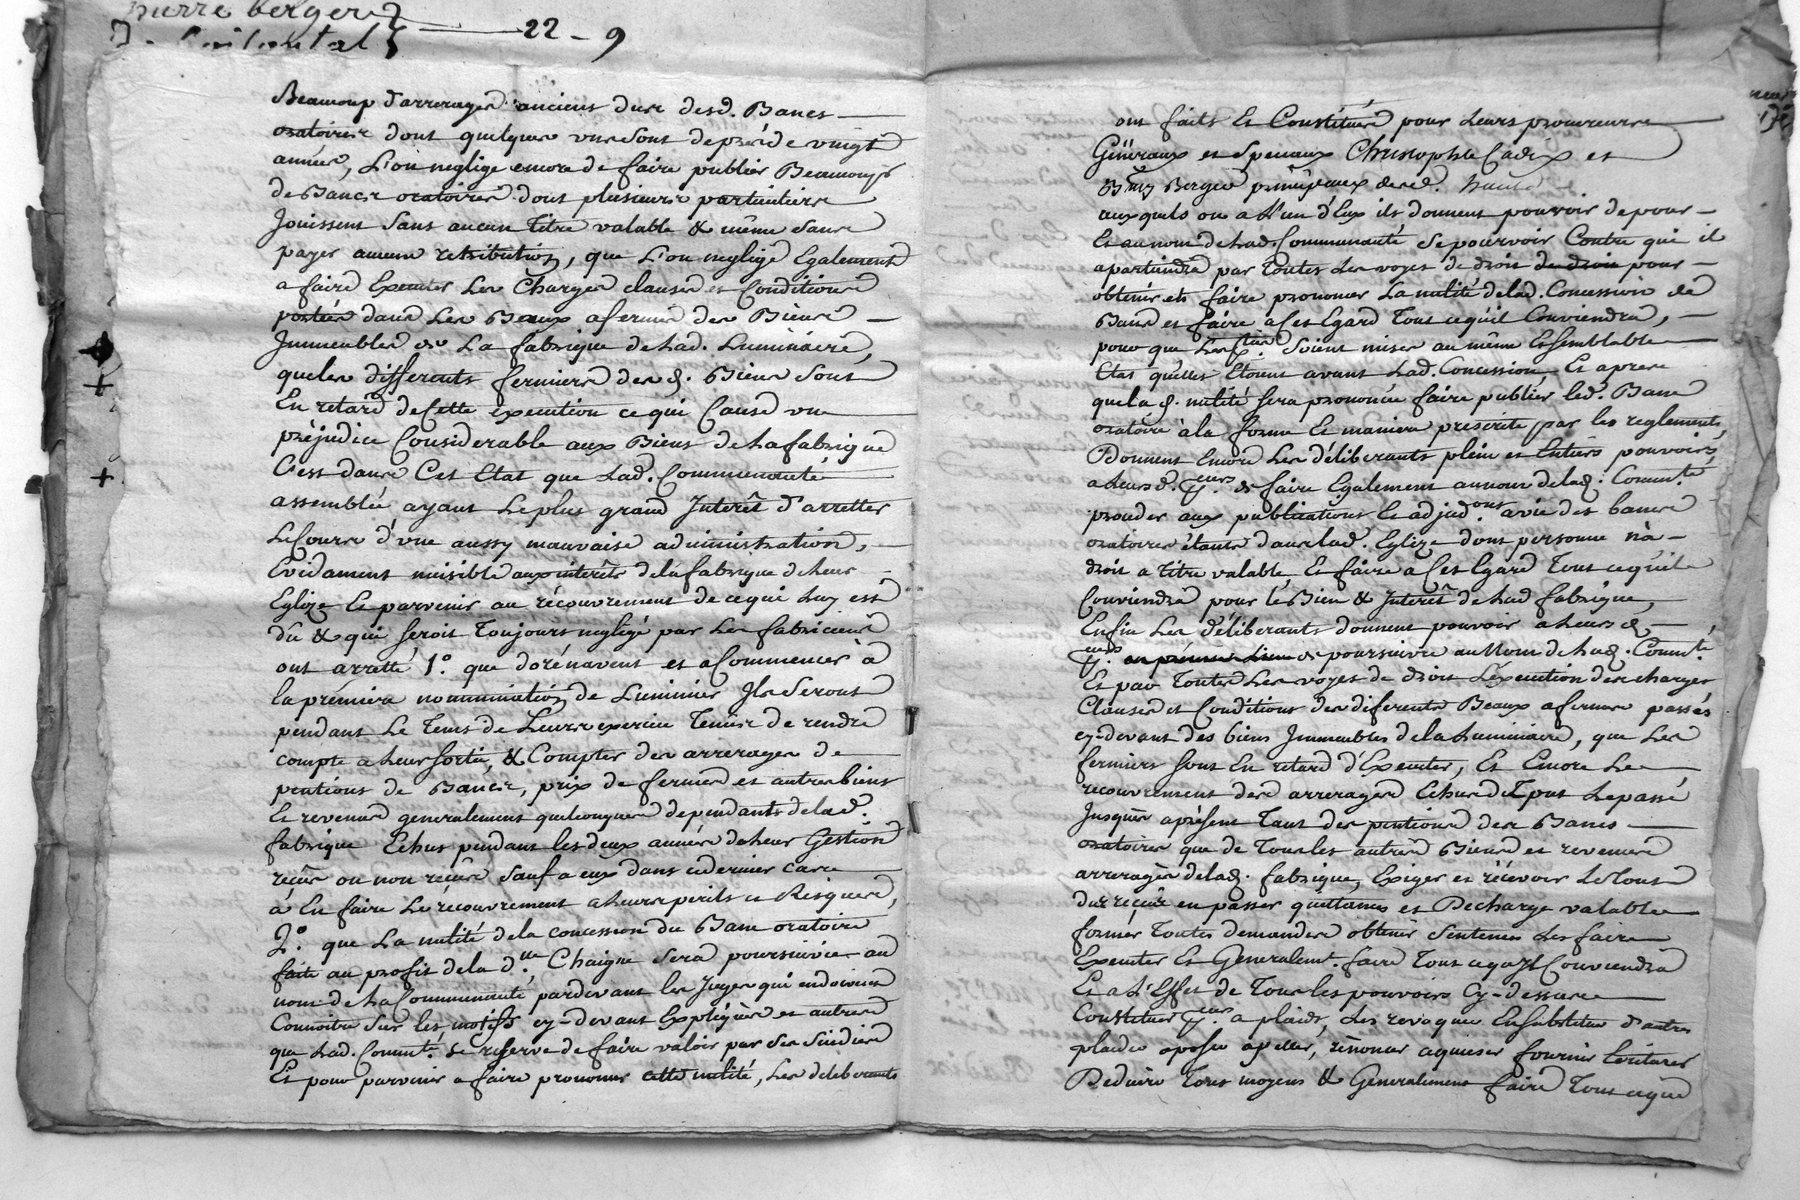 pierre berger
22 - 9
Beaucoup d'arrerages anciens dus desd. Bancs
oratoires dont quelques uns sont de près de vingt
années, L'on neglige encore de faire publier Beaucoup
de Bancs oratoires dont plusieurs particuliers
Jouissent sans aucun titre valable & même sans
payer aucune retribution, que L'on neglige Egalement
a faire Executer Les Charges clauses et Conditions
portées dans Les Beaux a ferme des Biens
Immeubles de La fabrique de Lad. Luminaire,
que les differents fermiers desd. Biens sont
En retard de Cette execution ce qui Cause un
préjudice Considerable aux Biens de La fabrique
C'est dans Cet Etat que Lad. Communauté
assemblée ayant Le plus grand Interêt d'arretter
Le Cours d'une aussy mauvaise administration,
Evidament nuisible aux interêts de la fabrique de leur
Eglize Et parvenir au récouvrement de ce qui Luy est
dû & qui seroit Toujours negligé par Les fabriciens
ont arretté 1.° que dorénavent et a Commencer à
la premiere nommination de Luminier Ils Seront
pendant Le Tems de Leurs exercice Tenus de rendre
compte a Leur sortie, & Compter des arrerages de
pentions de Bancs, prix de fermes et autres biens
Et revenus generalement quelconques dependants de lad.
fabrique Echus pendant les deux années de Leur Gestion
reçus ou non reçus sauf a eux dans ce dernier cas
à En faire Le recouvrement a Leurs perils et Risques,
2.° que La nulité de la concession du Banc oratoire
faite au profit de la d.lle Chaigne sera poursuivie au
nom de La Communauté pardevant les Juges qui en doivent
Connoitre sur les motifs cy-devant Expliqués et autres
que Lad. Commté. se reserve de faire valoir par ses Sindics
Et pour parvenir a faire prononcer cette nulité, Les deliberants
ont faits Et Constitués pour Leurs procureurs
Généraux et Speciaux Christophle Cadix et
Berger principeaux desd.
auxquels ou a L'un d'Eux ils donnent pouvoir de pour
Et au nom de Lad. Communauté se pourvoir Contre qui il
apartiendra par toutes Les voyes de droit de droit pour
obtenir et faire prononcer La nulité de lad. Concession de
Banc et faire a Cet Egard Tout ce qu'il Conviendra,
pour que Les parties Soient mises au même Et semblable
Etat qu'elles Etoient avant Lad. Concession, Et apres
que lad. nulité sera prononcée faire publier led. Banc
oratoire à la forme Et maniere prescrite par les reglements,
Donnent Encore Les déliberants plein et Entiers pouvoirs,
a Leursd. preurs. de faire Egalement au nom de lad. Commté.
proceder aux publications Et adjud.ons a vie des bancs
oratoires étants dans lad. Eglize dont personne n'a
droit a titre valable, Et faire a Cet Egard Tout ce qu'il
Conviendra pour le Bien & Interêt de Lad fabrique,
Enfin Les déliberants donnent pouvoir a Leursd.
preurs. en premier lieu de poursuivre au Nom de Lad. Commté.
Et par Toutes Les voyes de droit L'éxecution des charges
Clauses et Conditions des diferents Beaux a fermes passés
cy-devant des biens Immeubles de la Luminaire, que Les
fermiers sont En retard d'Executer, Et Encore Le
recouvrement des arrerages Echus de Tout Le passé
Jusques apresent Tant des pentions des Bancs
oratoires que de Tous les autres Biens et revenus
arreragés de lad. fabrique, Exiger et récevoir Le Tout
du reçus en passer quittances et Decharge valable
former Toutes demandes obtenir Sentences Les faire
Executer Et Generalemt. faire Tout ce qu'Il Conviendra
Et a L'Effet de Tous les pouvoirs Cy-dessus
Constituer preurs. a plaids, Les revoquer En substituer d'autres
plaider oposer apeller, rénoncer aquiescer fournir Ecritures
Deduire Tous moyens & Generalement faire Tout ce que